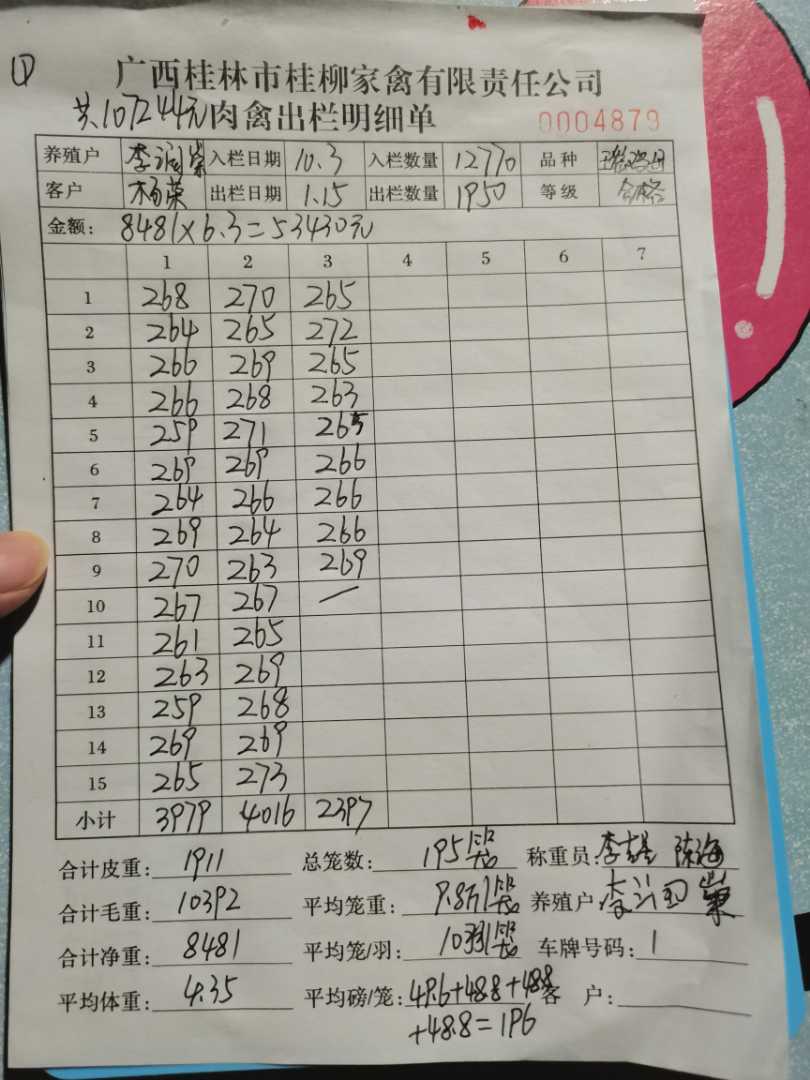 ①
广西桂林市桂柳家禽有限责任公司
共107244元 肉禽出栏明细单 0004879
养殖户 李润崇 入栏日期 10.3 入栏数量 12770 品种
客户 杨荣 出栏日期 1.15 出栏数量 1950 等级 合格
金额: 8481×6.3=53430元
1 2 3 4 5 6 7
1 268 270 265
2 264 265 272
3 266 269 265
4 266 268 263
5 259 271 265
6 269 269 266
7 264 266 266
8 269 264 266
9 270 263 269
10 267 267 —
11 261 265
12 263 269
13 259 268
14 269 269
15 265 273
小计 3979 4016 2397
合计皮重: 1911 总笼数: 195笼 称重员: 陈海
合计毛重: 10392 平均笼重: 9.8斤/笼 养殖户 李润崇
合计净重: 8481 平均笼/羽: 10羽/笼 车牌号码: 1
平均体重: 4.35 平均磅/笼: 49.6+48.8+48.8 客 户:
+48.8=196